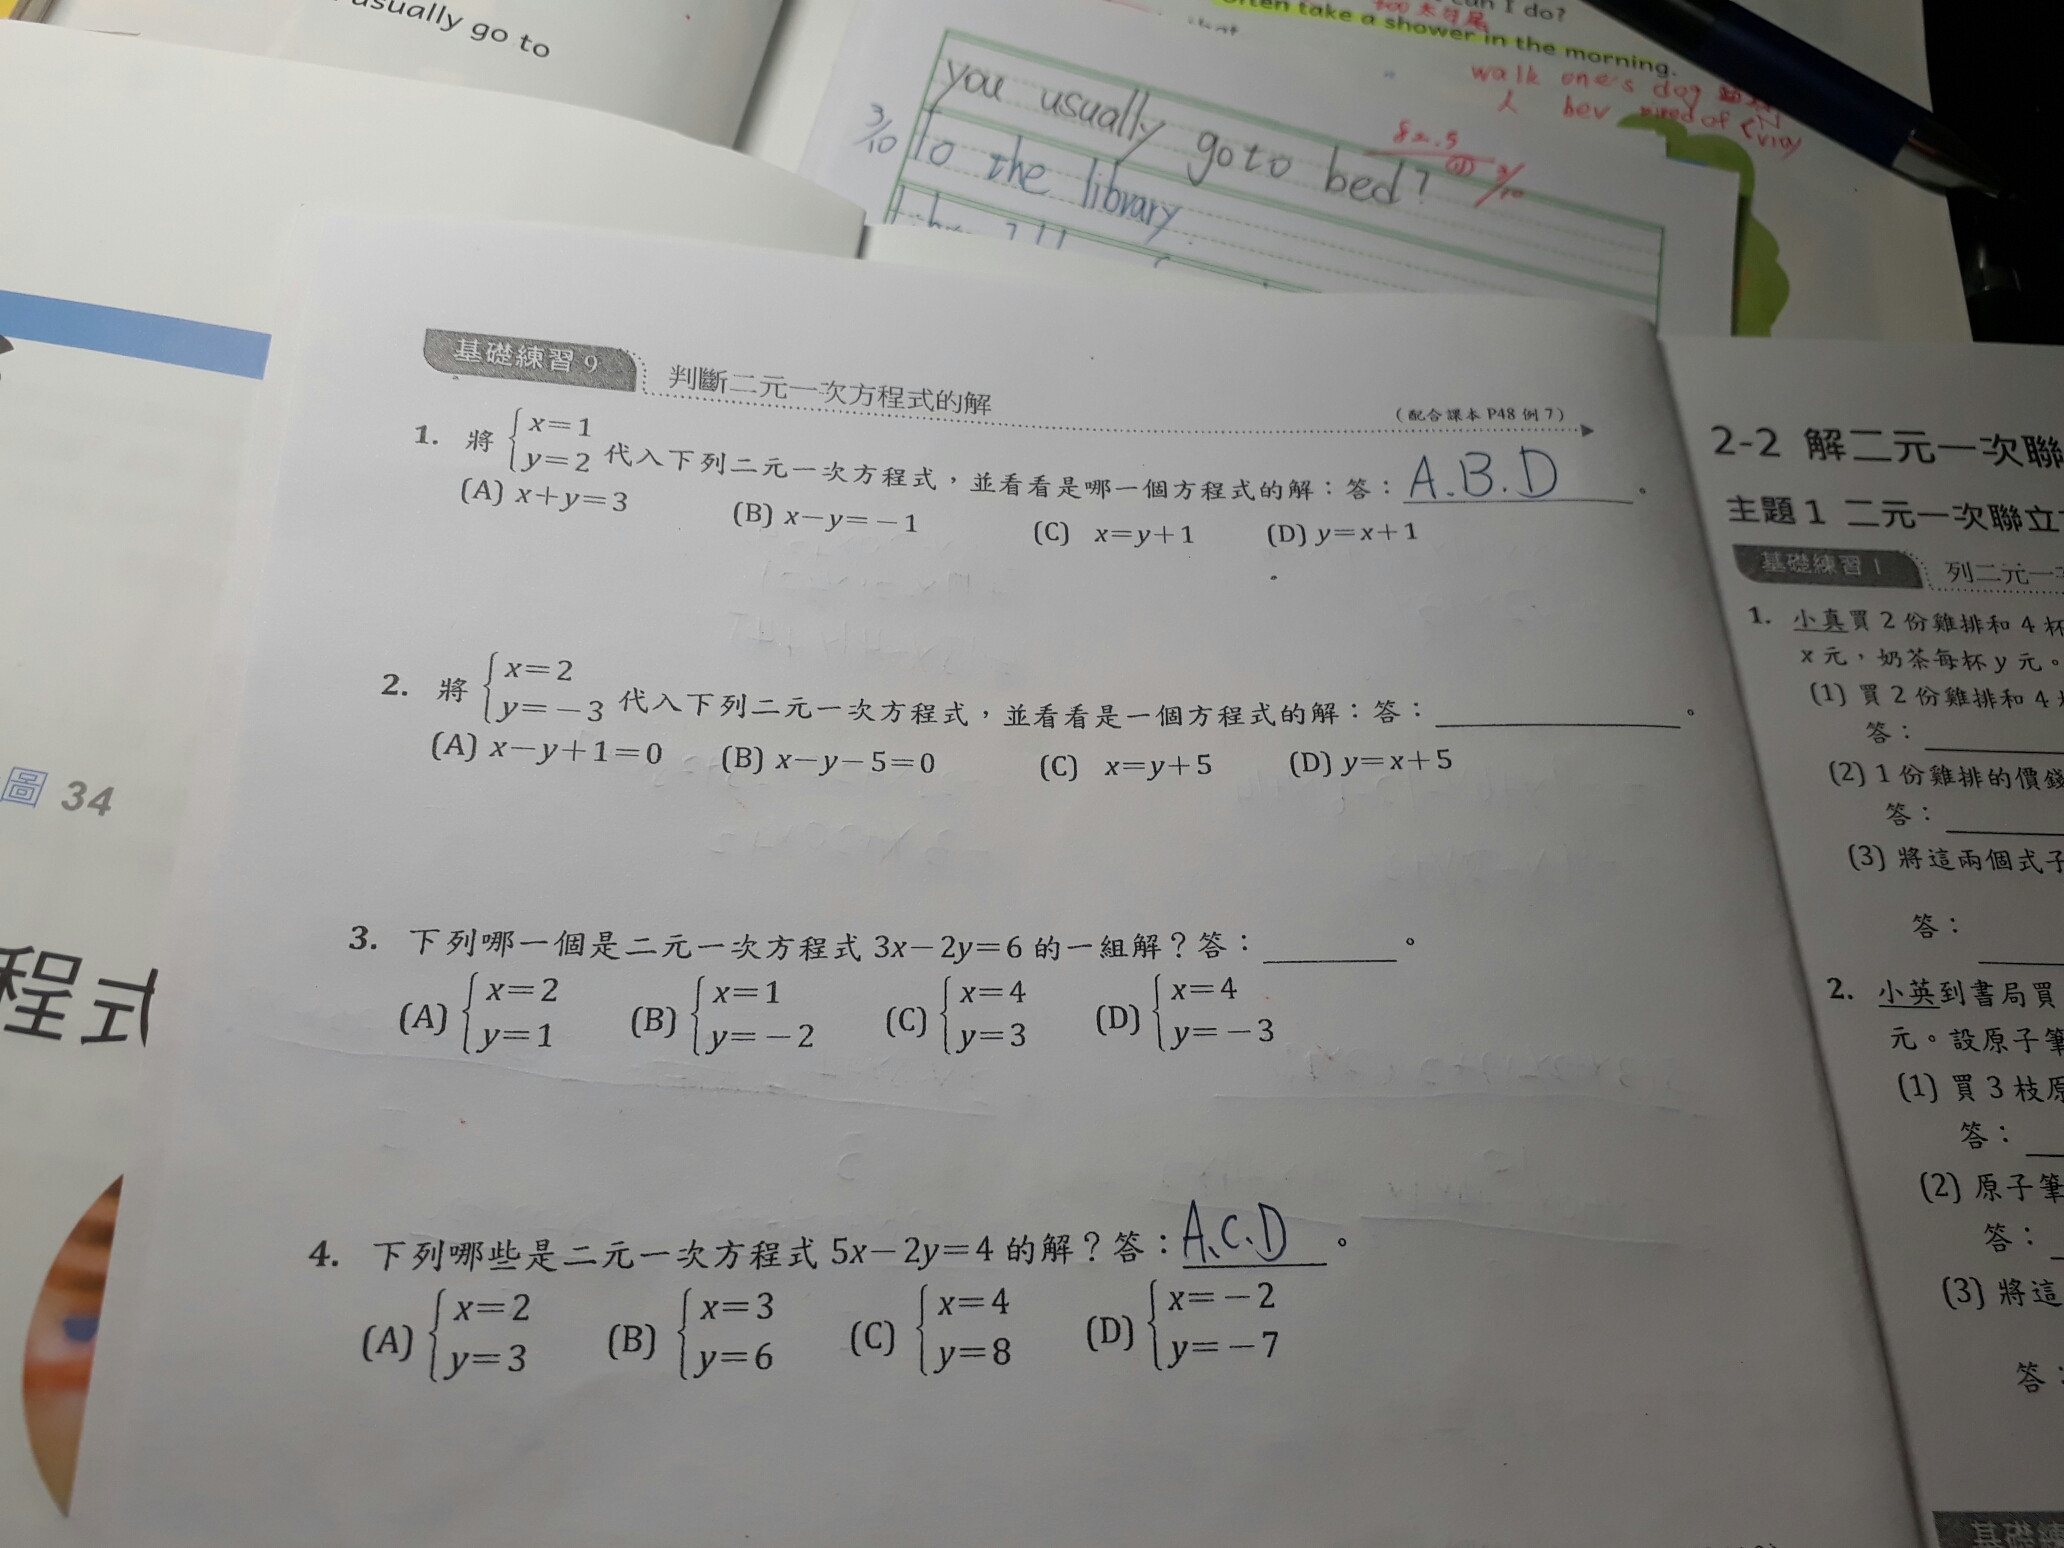 usually go to
can I do?
often take a shower in the morning.
walk one's dog
you usually go to bed?
82.5
3/10
To the library.
基礎練習 9 判斷二元一次方程式的解
(配合課本 P48 例 7)
1. 將 { x=1 y=2 代入下列二元一次方程式,並看看是哪一個方程式的解:答: A.B.D 。
(A) x+y=3 (B) x-y=-1 (C) x=y+1 (D) y=x+1
2. 將 { x=2 y=-3 代入下列二元一次方程式,並看看是一個方程式的解:答:。
(A) x-y+1=0 (B) x-y-5=0 (C) x=y+5 (D) y=x+5
3. 下列哪一個是二元一次方程式 3x-2y=6 的一組解?答:。
(A) { x=2 y=1 (B) { x=1 y=-2 (C) { x=4 y=3 (D) { x=4 y=-3
4. 下列哪些是二元一次方程式 5x-2y=4 的解?答: A、C、D 。
(A) { x=2 y=3 (B) { x=3 y=6 (C) { x=4 y=8 (D) { x=-2 y=-7
圖 34
程式
2-2 解二元一次聯
主題 1 二元一次聯立
基礎練習 1 列二元一
1. 小真買 2 份雞排和 4 杯
x 元,奶茶每杯 y 元。
(1) 買 2 份雞排和 4
答:
(2) 1 份雞排的價錢
答:
(3) 將這兩個式子
答:
2. 小英到書局買
元。設原子筆
(1) 買 3 枝原
答:
(2) 原子筆
答:
(3) 將這
答:
基礎練